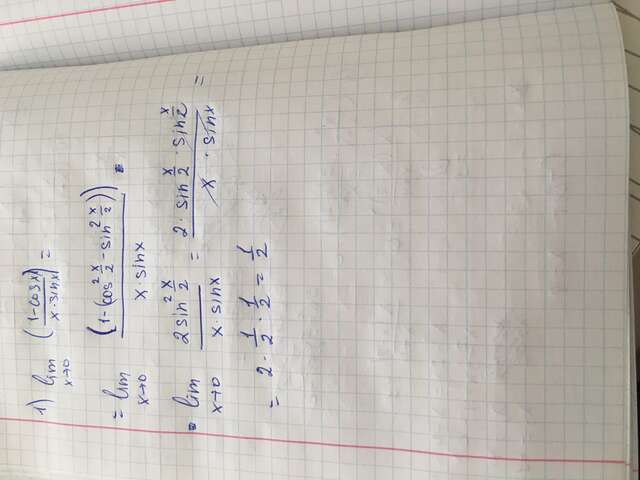 1) lim x→0 ( (1-cosx) / (x·sinx) ) =
= lim x→0 (1-(cos² x/2 - sin² x/2)) / (x·sinx) =
= lim x→0 (2sin² x/2) / (x·sinx) = (2·sin x/2 · sin x/2) / (x · sinx) =
= 2 · 1/2 · 1/2 = 1/2